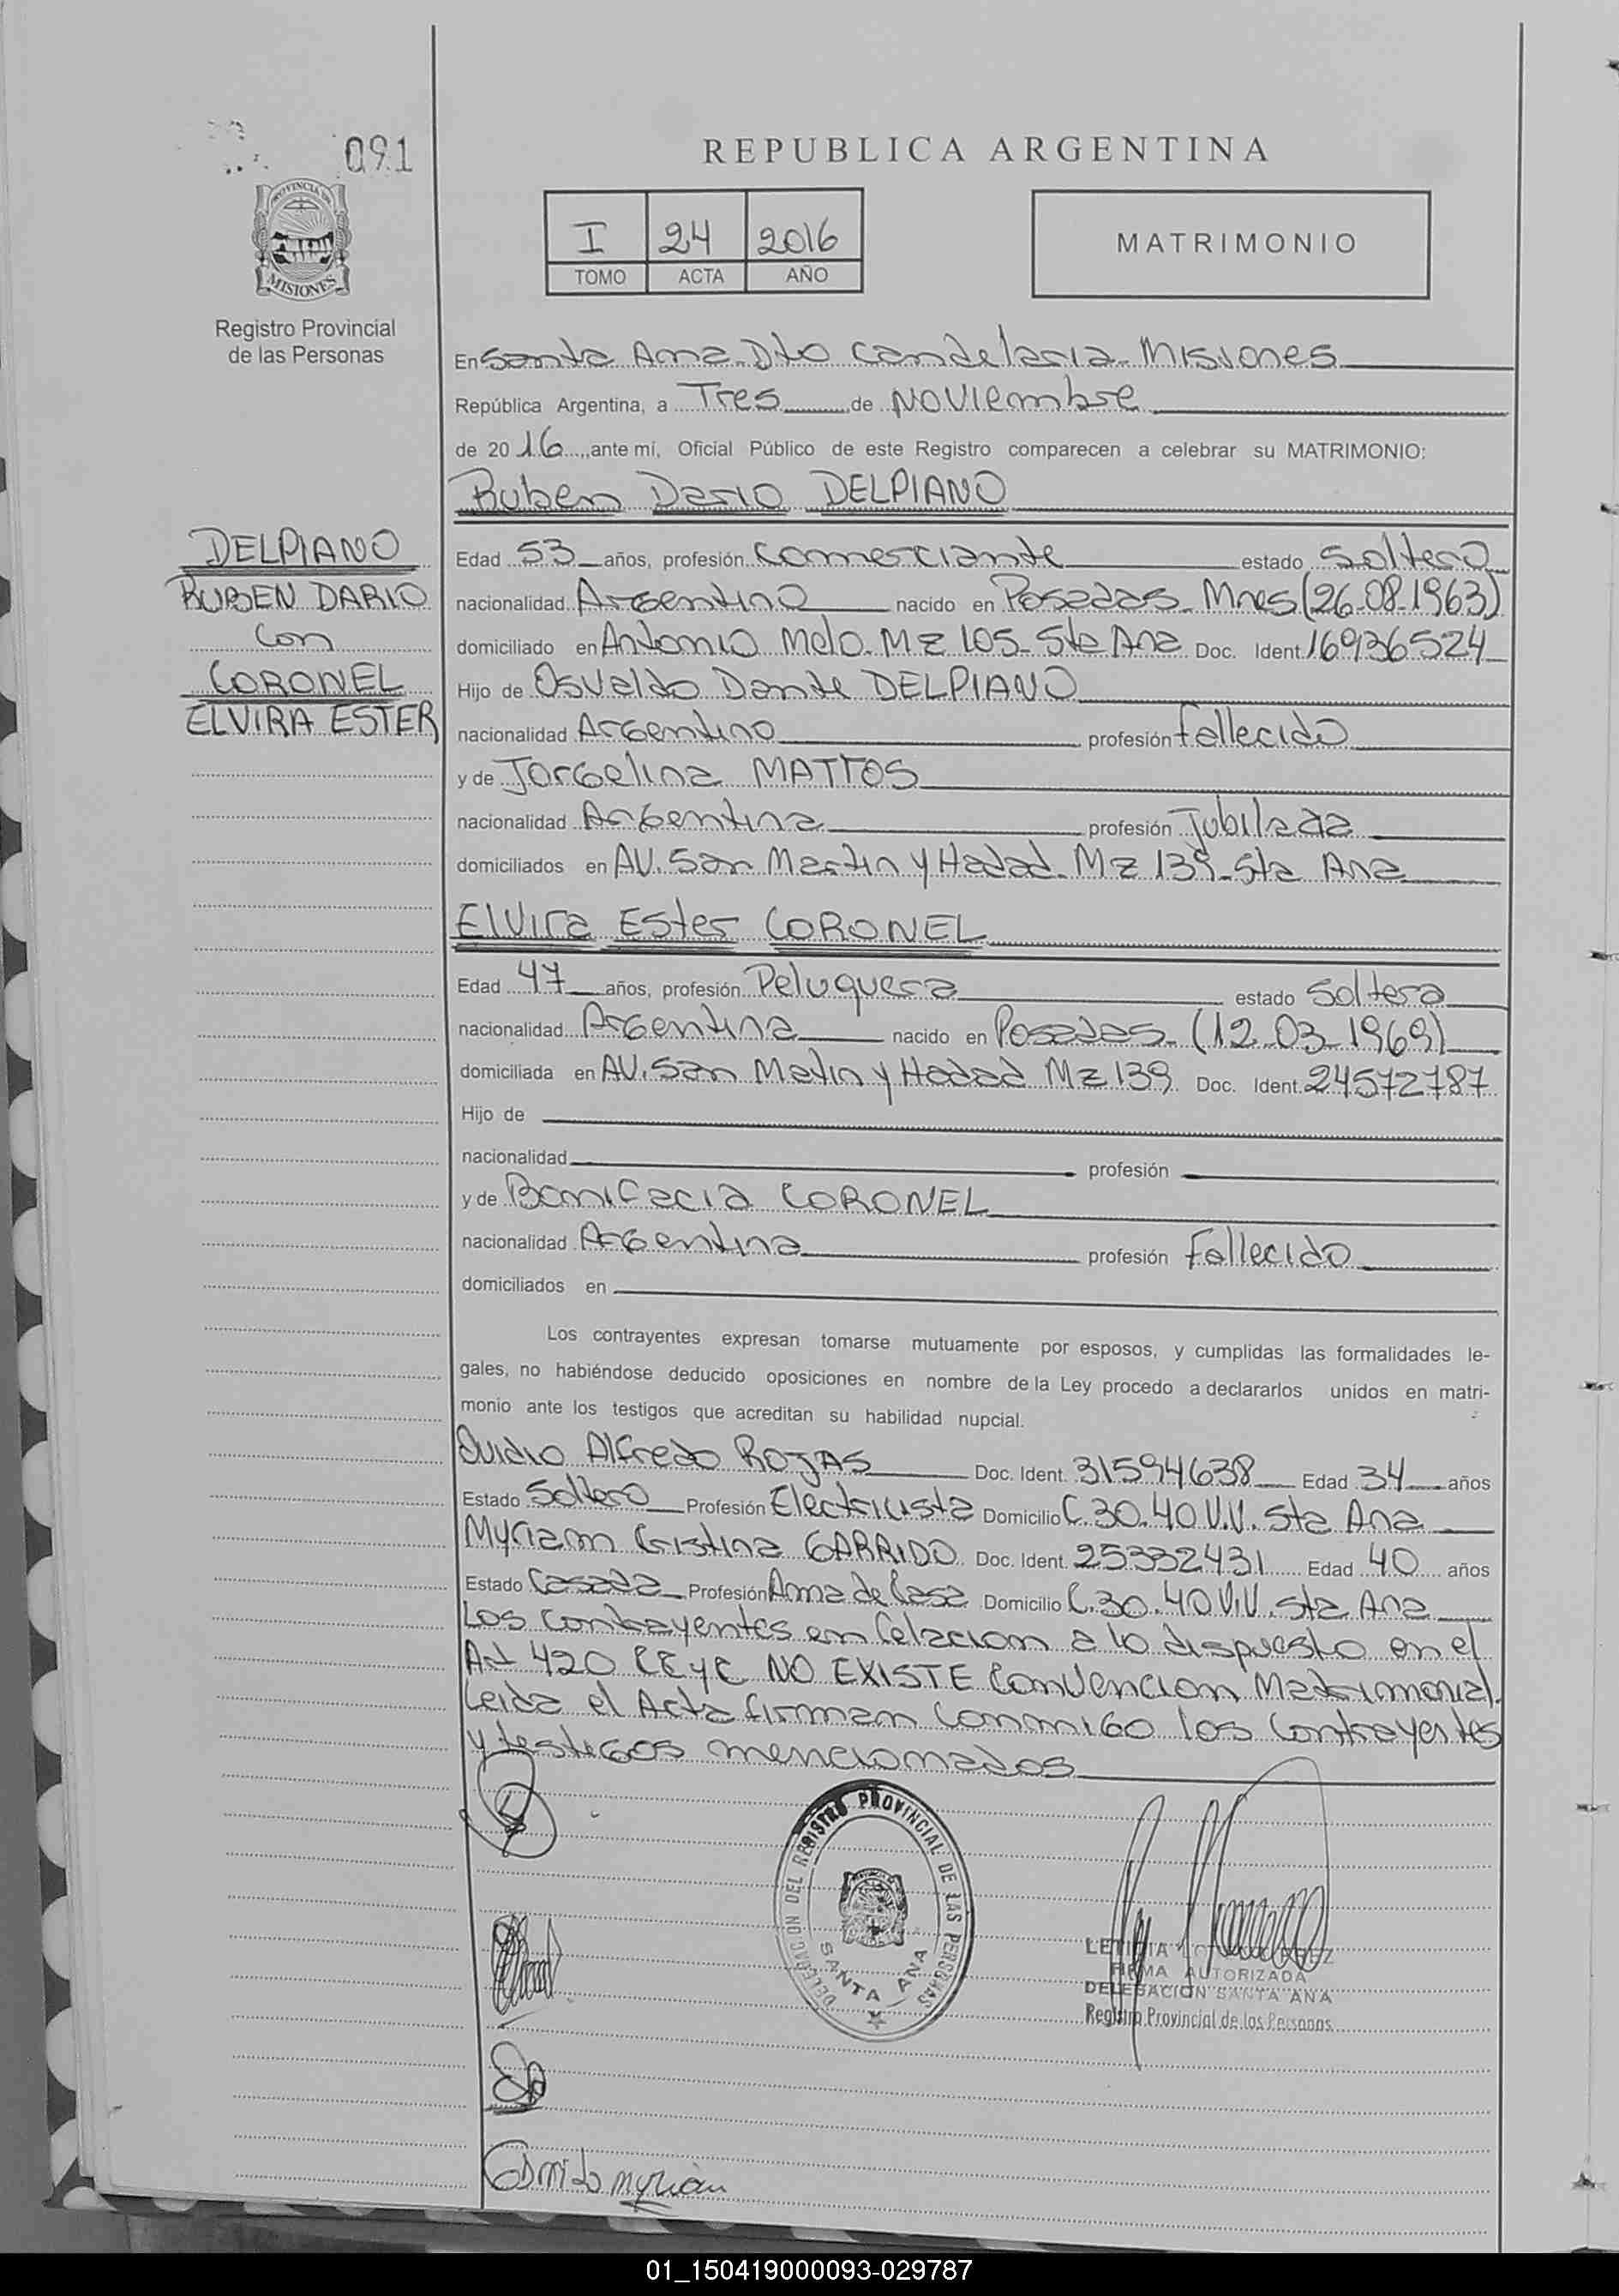 091
REPUBLICA ARGENTINA
I 24 2016
TOMO ACTA AÑO
MATRIMONIO
PROVINCIA DE
MISIONES
Registro Provincial
de las Personas
DELPIANO
RUBEN DARIO
Con
CORONEL
ELVIRA ESTER
En Santa Ana Dto Candelaria Misiones
República Argentina, a Tres de NOViembre
de 2016, ante mí, Oficial Público de este Registro comparecen a celebrar su MATRIMONIO:
Ruben Dario DELPIANO
Edad 53 años, profesión Comerciante estado Soltero
nacionalidad Argentino nacido en Posadas Mnes (26-08-1963)
domiciliado en Antonio Melo Mz 105 Sta Ana Doc. Ident. 16936524
Hijo de Osvaldo Dante DELPIANO
nacionalidad Argentino profesión fallecido
y de Jorgelina MATTOS
nacionalidad Argentina profesión Jubilada
domiciliados en AV. San Martin y Hadad Mz 139 Sta Ana
Elvira Ester CORONEL
Edad 47 años, profesión Peluquera estado Soltera
nacionalidad Argentina nacido en Posadas (12-03-1969)
domiciliada en AV. San Matin y Hadad Mz 139 Doc. Ident. 24572787
Hijo de
nacionalidad profesión
y de Bonifacia CORONEL
nacionalidad Argentina profesión Fallecido
domiciliados en
Los contrayentes expresan tomarse mutuamente por esposos, y cumplidas las formalidades le-
gales, no habiéndose deducido oposiciones en nombre de la Ley procedo a declararlos unidos en matri-
monio ante los testigos que acreditan su habilidad nupcial.
Ovidio Alfredo ROJAS Doc. Ident. 31594638 Edad 34 años
Estado Soltero Profesión Electricista Domicilio C. 30. 40 V.V. Sta Ana
Myriam Cristina GARRIDO Doc. Ident. 25332431 Edad 40 años
Estado Casada Profesión Ama de Casa Domicilio C. 30. 40 V.V. Sta Ana
Los Contrayentes en relacion a lo dispuesto en el
Art 420 CCyC NO EXISTE Convencion Matrimonial.
Leida el Acta firman Conmigo los Contrayentes
y testigos mencionados
DELEGACION DEL REGISTRO PROVINCIAL DE LAS PERSONAS
SANTA ANA
LETICIA
FIRMA AUTORIZADA
DELEGACION SANTA ANA
Registro Provincial de las Personas
Garrido Myrian
01_150419000093-029787